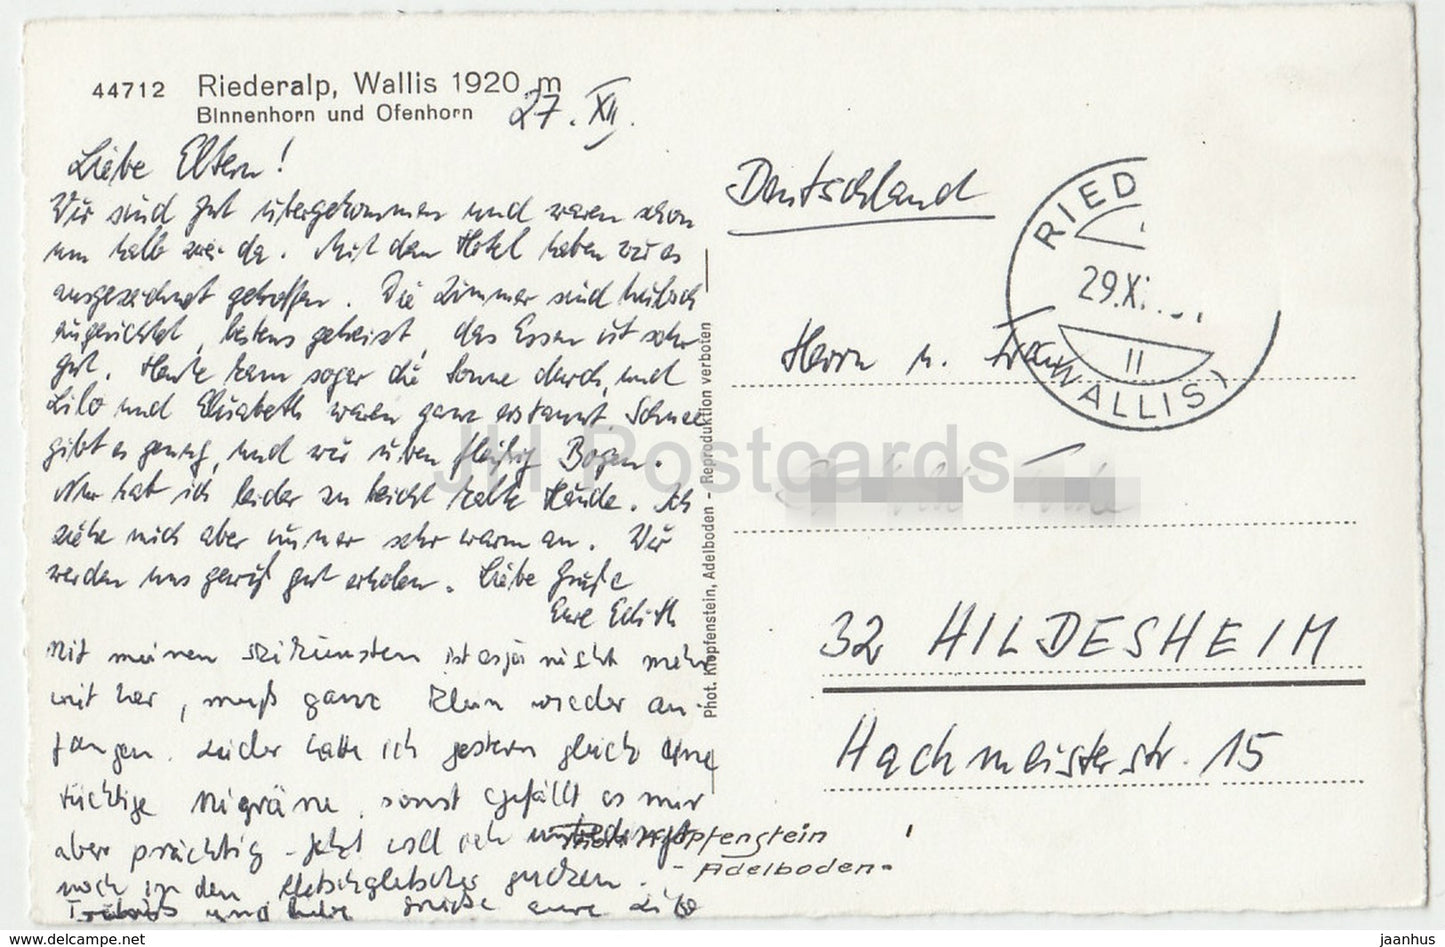 44712 Riederalp, Wallis 1920 m
Binnenhorn und Ofenhorn
27. XII.
Liebe Eltern!
Wir sind gut übergekommen und waren schon
um halb zwei da. Mit dem Hotel haben wir es
ausgezeichnet getroffen. Die Zimmer sind hübsch
eingerichtet, bestens geheizt, das Essen ist sehr
gut. Heute kam sogar die Sonne durch, und
Lilo und Elisabeth waren ganz erstaunt. Schnee
gibt es genug, und wir üben fleißig Bogen.
Nur hab ich leider zu leicht kalte Hände. Ich
ziehe mich aber immer sehr warm an. Wir
werden uns gewiß gut erholen. Liebe Grüße
Eure Edith
Mit meinen Skikünsten ist es ja nicht mehr
weit her, muß ganz klein wieder an-
fangen. Leider hatte ich gestern gleich eine
tüchtige Migräne, sonst gefällt es mir
aber prächtig - Jetzt will ich unbedingt
noch in den Aletschgletscher gucken.
und liebe Grüße eure Lilo
Phot. Klopfenstein, Adelboden - Reproduktion verboten
Deutschland
RIED
29.XI
II
WALLIS)
Herrn u. Frau
32 HILDESHEIM
Hachmeisterstr. 15
Klopfenstein
- Adelboden -
JH Postcards
www.delcampe.net
jaanhus